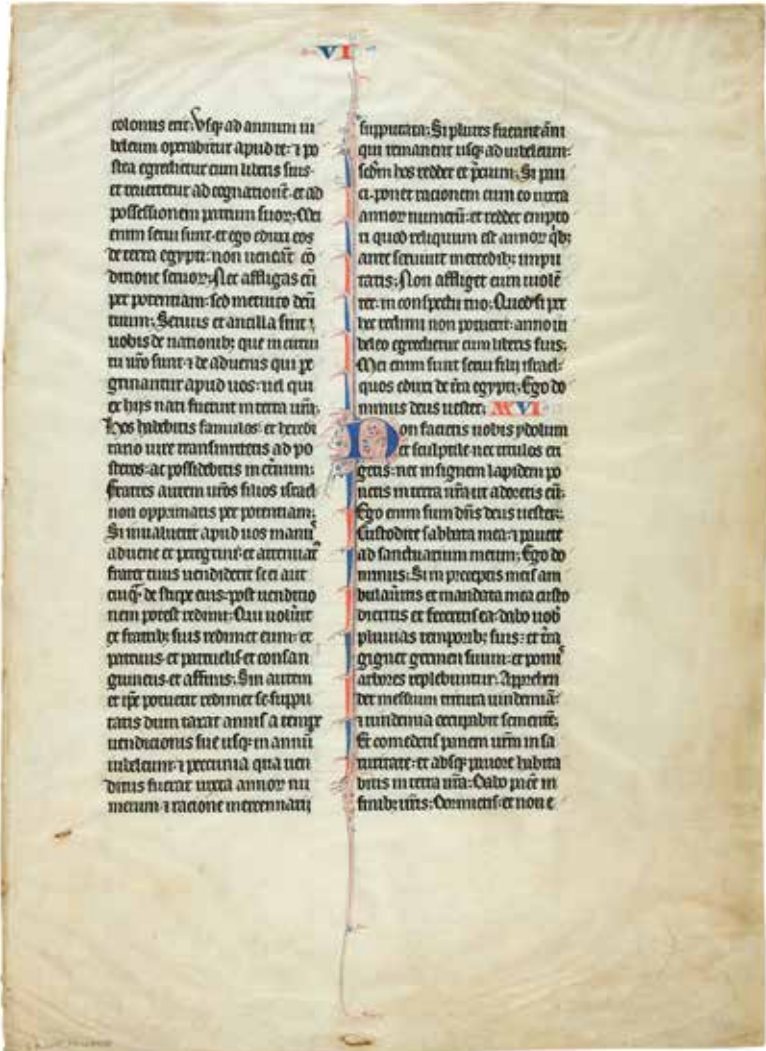 VI
colonus erit. Vsq; ad annum iu
beleum operabitur apud te: ⁊ po
stea egredietur cum liberis suis.
et reuertetur ad cognationē. et ad
possessionem patrum suoꝝ. Mei
enim serui sunt. et ego eduxi eos
de terra egypti: non ueneāt cō
ditione seruoꝝ. Nec affligas eū
per potentiam: sed metuito deū
tuum. Seruus et ancilla sint
uobis de nationib; que in circui
tu uꝛo sunt. ⁊ de aduenis qui pe
grinantur apud uos: uel qui
ex hijs nati fuerint in terra uꝛa.
Hos habebitis famulos: et heredi
tario iure transmittetis ad po
steros: ac possidebitis in eternum.
Fratres autem uꝛos filios israel
non opprimatis per potentiam.
Si inualuerit apud uos manus
aduene et peregrini: et attenuat
frater tuus uendiderit se ei aut
cuiq̄ de stirpe eius: post uenditio
nem potest redimi. Qui uoluerit
ex fratrib; suis redimet eum: et
patruus. et patruelis. et consan
guineus. et affinis. Sin autem
et ip̄e potuerit redimet se. suppu
tatis dum taxat annis a tempore
uendicionis sue usq; in annū
iubeleum: ⁊ pecunia qua uen
ditus fuerat iuxta annoꝝ nu
merum. ⁊ racione mercennarij
supputata. Si plures fuerint āni
qui remanent usq; ad iubeleum:
scdm hos reddet et p̄cium. Si pau
ci. ponet racionem cum eo iuxta
annoꝝ numerū: et reddet empto
ri quod reliquum est annoꝝ. qb;
ante seruiuit mercedib; impu
tatis. Non affliget eum uiolē
ter: in conspectu tuo. Quod si per
hec redimi non potuerit: anno iu
beleo egredietur cum liberis suis.
Mei enim sunt serui filij israel:
quos eduxi de tꝛa egypti. Ego do
minus deus uester. XXVI
Non facietis uobis ydolum
et sculptile. nec titulos eri
getis: nec insignem lapidem po
netis in terra uꝛa ut adoretis eū.
Ego enim sum dn̄s deus uester.
Custodite sabbata mea: ⁊ pauete
ad sanctuarium meum. Ego do
minus. Si in preceptis meis am
bulaueritis et mandata mea custo
dieritis et feceritis ea: dabo uob
pluuias temporib; suis: et tꝛa
gignet germen suum: et pomis
arbores replebuntur. Apprehen
det messium tritura uindemiā:
⁊ uindemia occupabit sementē.
Et comedetis panem uꝛm in sa
turitate: et absq; pauore habita
bitis in terra uꝛa. Dabo pacē in
finib; uꝛis. Dormietis. et non e